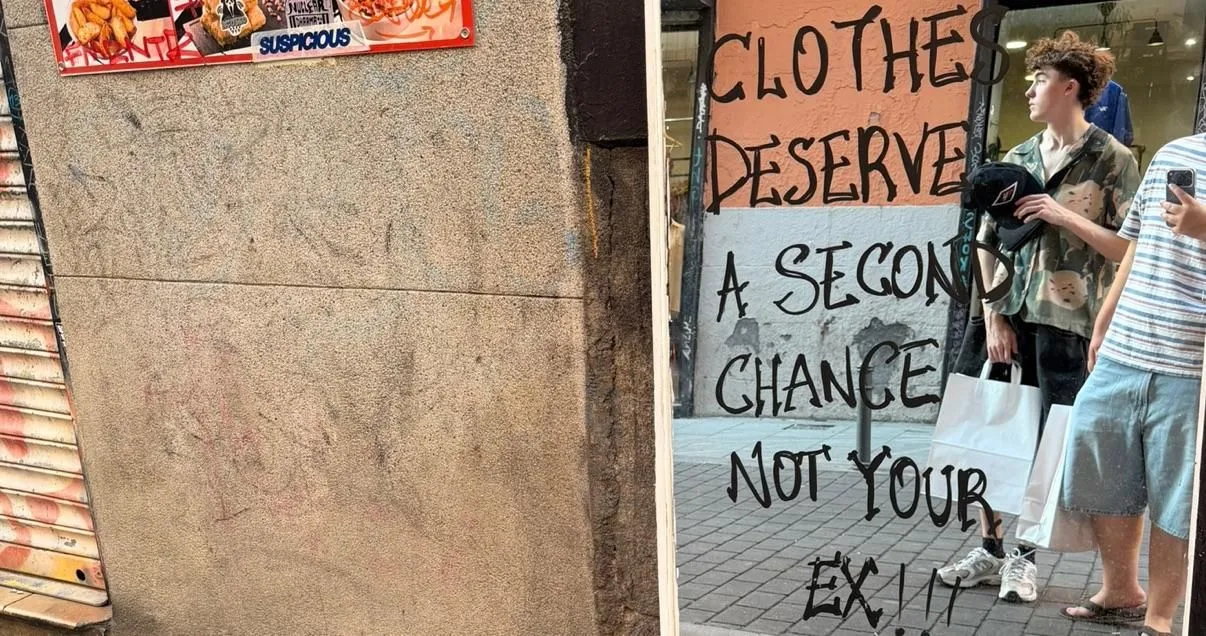 SUSPICIOUS
CLOTHES
DESERVE
A SECOND
CHANCE
NOT YOUR
EX!!!